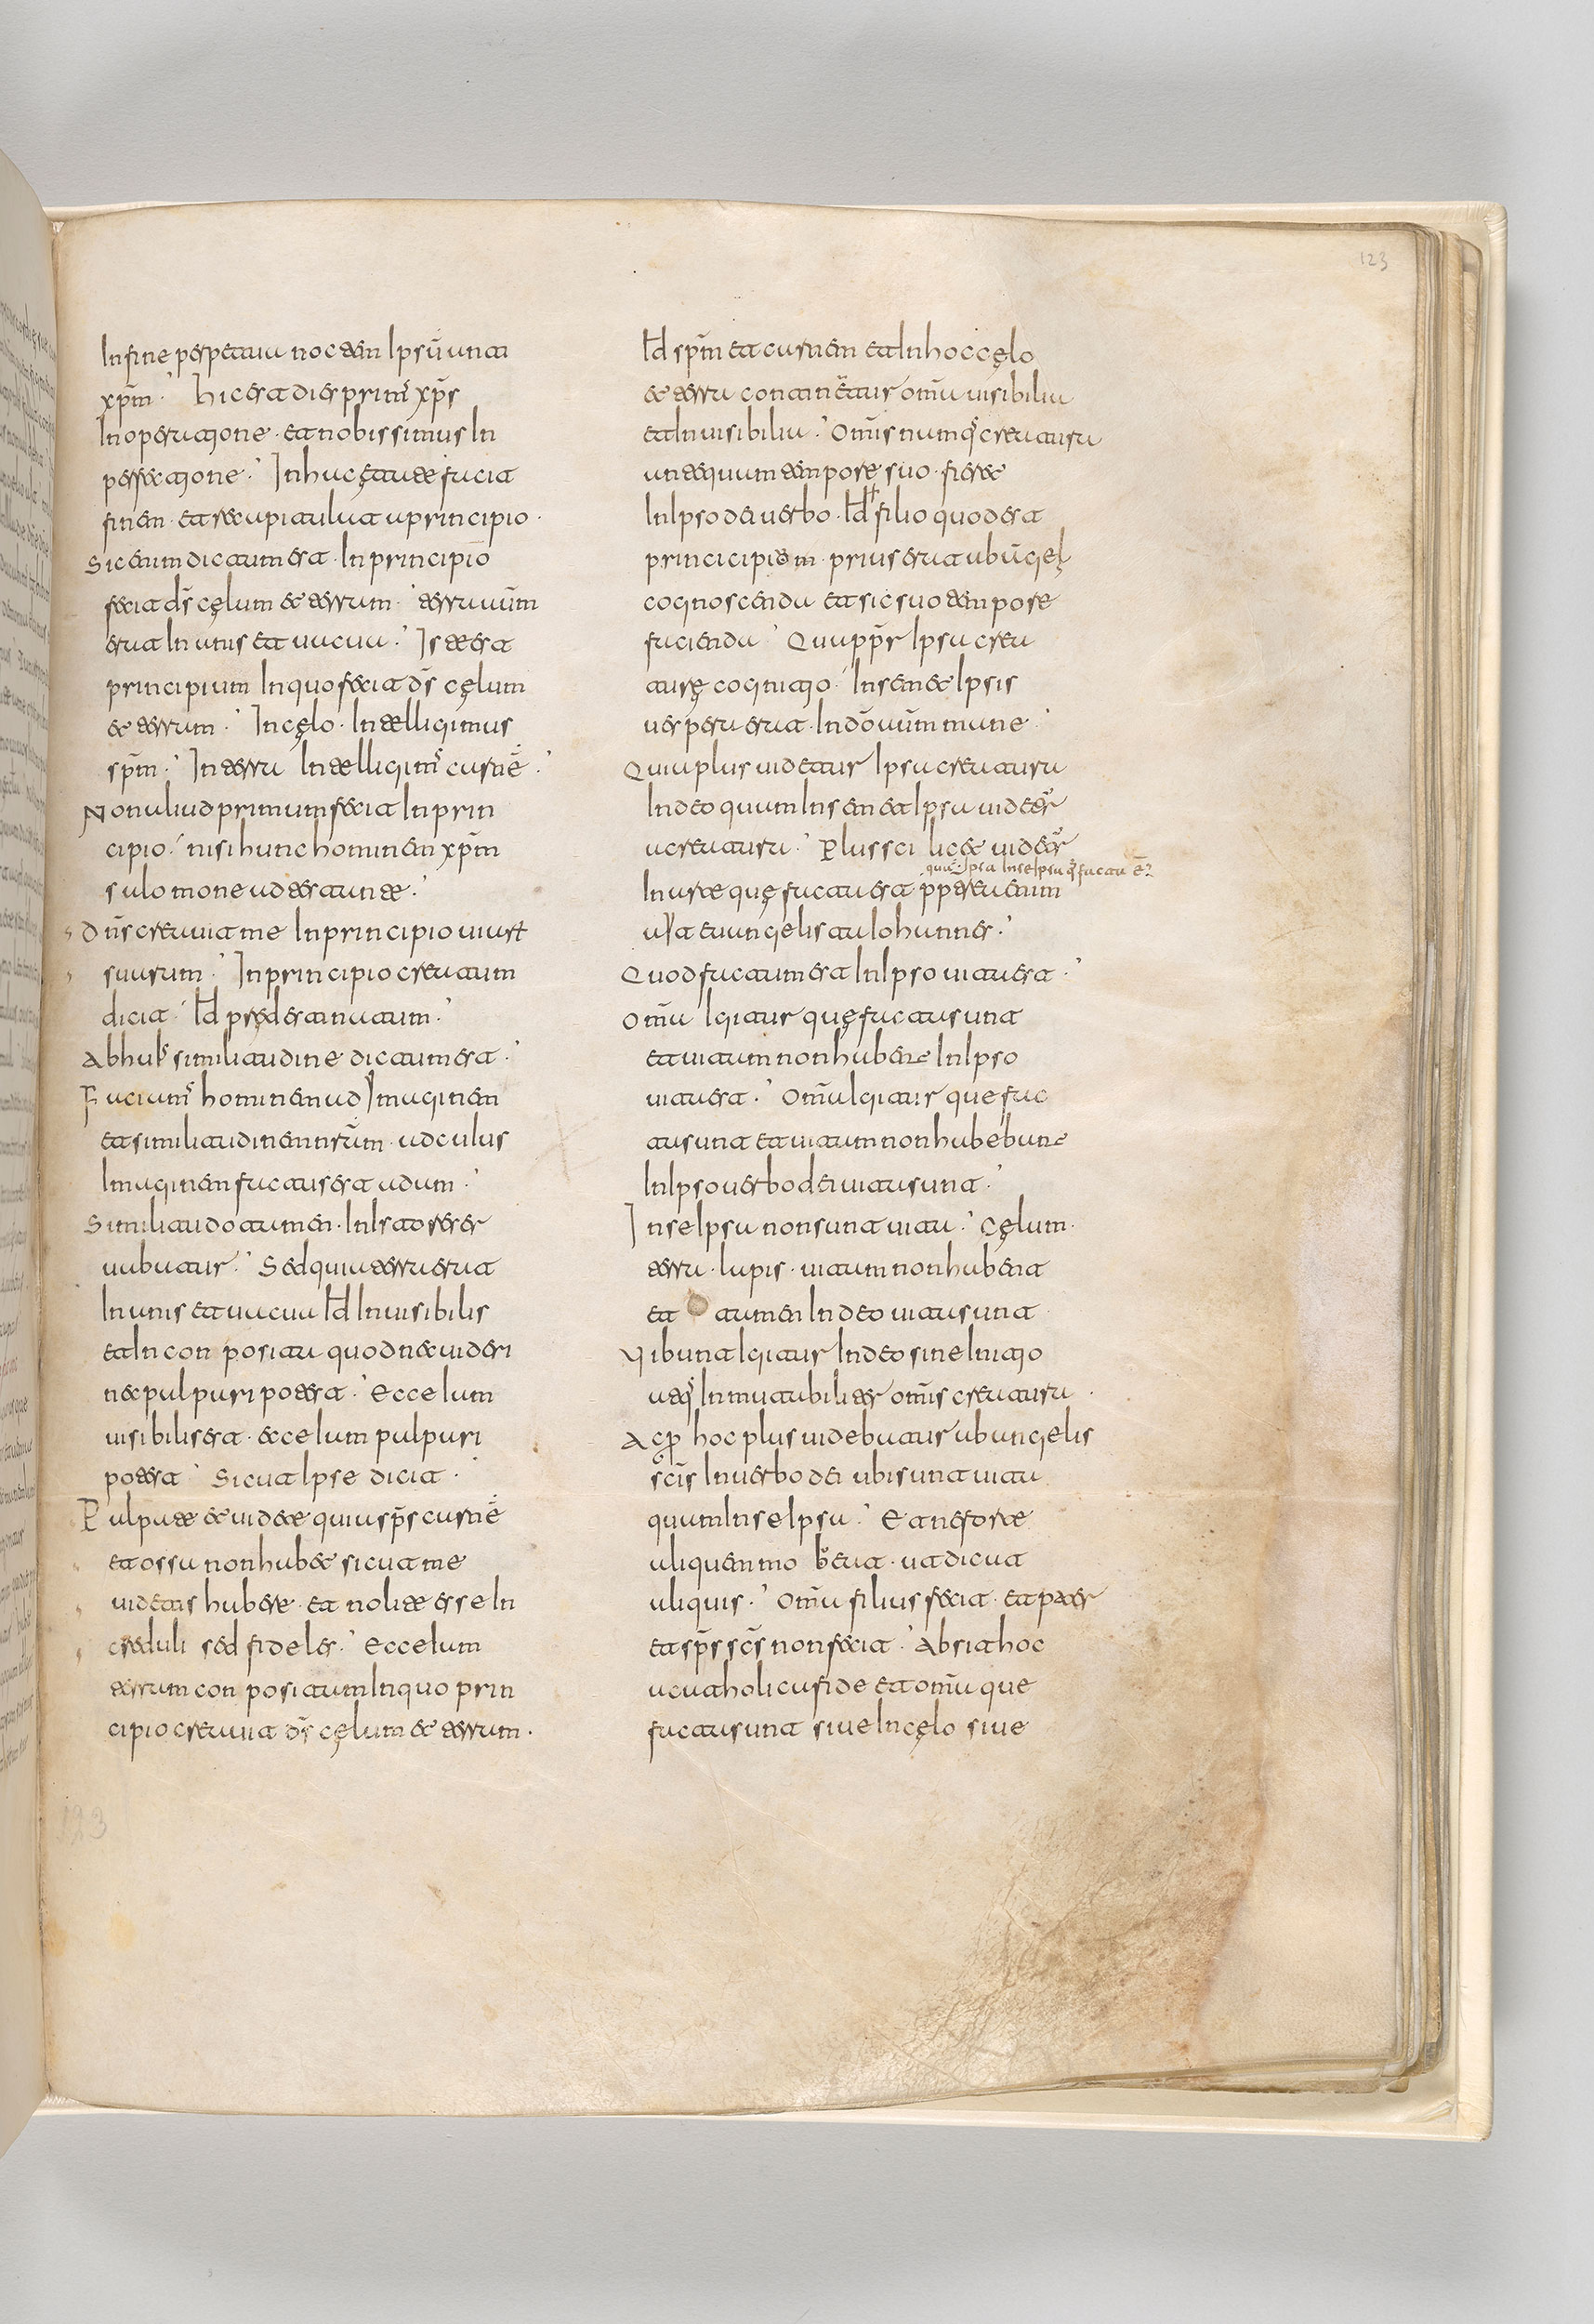 Infine noctem Ipsū
xp̄m · Hic est dies prim' xp̄s
In operatjone · et nobissimus In
perfectjone · In hac ętate facit
finem · et recapitulat a principio ·
Sic enim dictum est · In principio
fecit ds̄ cęlum et terram · terra aūm
erat Inanis et uacua · Iste est
principium In quo fecit ds̄ cęlum
et terram · In cęlo · Intelligimus
sp̄m · In terra Intelligim' carnē ·
Non aliud primum fecit In prin
cipio · nisi hunc hominem xp̄m
salomone adtestante ·
Dn̄s creauit me In principio uiarū
suarum · In principio creatum
dicit · Id predestinatum ·
Ab huis similitudine dictum est ·
Faciam' hominem ad Imaginem
et similitudinem nr̄am · ad cuius
Imaginem factus est adam ·
Similitudo tamen · In Isto reser
uabatur · Sed quia terra erat
Inanis et uacua Id Inuisibilis
et Incon posita quod nec uideri
nec palpari potest · Ecce iam
uisibilis est · ecce iam palpari
potest · Sicut Ipse dicit ·
Palpate et uidete quia sp̄s carnē
et ossa non habet sicut me
uidetis habere · et nolite esse In
creduli sed fideles · Ecce iam
terram con positam In quo prin
cipio creauit ds̄ cęlum et terram ·
Id sp̄m et carnem et In hoc cęlo
et terra continētur om̄a uisibilia
et Inuisibilia · Om̄is numq' creatura
antequam tempore suo · fieret
In Ipso dei uerbo · Id filio quod est
princicipiom · prius erat ab āgel
cognoscenda et sic suo tempore
facienda · Quapp̄r Ipsa crea
turę cognitjo · In semet Ipsis
uespera erat · In dō aūm mane ·
Quia plus uidetur Ipsa creatura
In deo quam In se met Ipsa uidet'
a creatura · Plus sci licet uidet'
quā Ipsa In se Ipsa q̄ facta ē
In arte quę facta est p̄p̄terea enim
ait euangelista Iohannes ·
Quod factum est In Ipso uita est ·
Om̄a Igitur quę facta sunt
et uitam non habent In Ipso
uita est · Om̄a Igitur que fac
ta sunt et uitam non habēbant
In Ipso uerbo dei uita sunt ·
In se Ipsa non sunt uita · Cęlum ·
terra · lapis · uitam non habent
et tamen In deo uita sunt
Uibunt Igitur In deo sine Initjo
atq' Inmutabiliter om̄is creatura ·
Ac ꝑ hoc plus uidebatur ab angelis
sc̄is In uerbo dei ubi sunt uita
quam In se Ipsa · Et ne forte
aliquem mobeat · ut dicat
aliquis · Om̄a filius fecit · et pater
et sp̄s sc̄s non fecit · Absit hoc
a catholica fide et om̄a que
facta sunt siue In cęlo siue
123
123